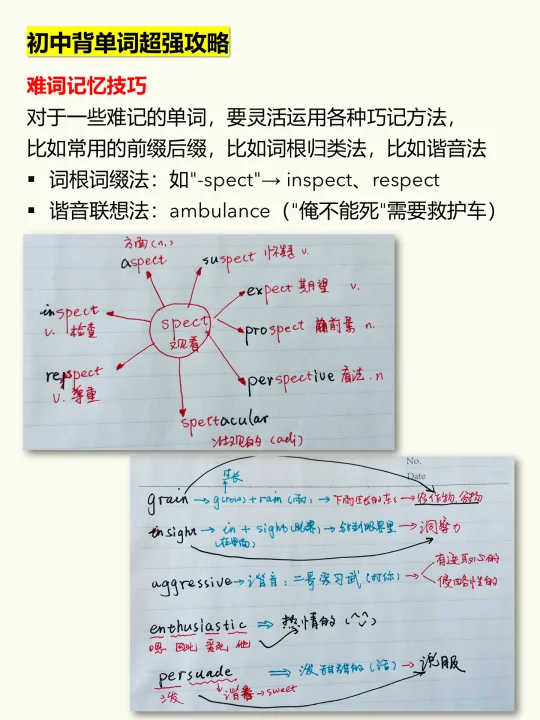 初中背单词超强攻略
难词记忆技巧
对于一些难记的单词，要灵活运用各种巧记方法，
比如常用的前缀后缀，比如词根归类法，比如谐音法
▪ 词根词缀法：如"-spect"→ inspect、respect
▪ 谐音联想法：ambulance（"俺不能死"需要救护车）
方面(n.)
aspect
suspect 怀疑 v.
expect 期望 v.
inspect
v. 检查
spect
观看
prospect 前景 n.
respect
v. 尊重
perspective 看法 n
spectacular
壮观的 (adj)
No.
Date
生长
grain → g(row) + rain (雨) → 下雨生长的东 → 农作物,谷物
insight → in + sight (眼界) → 到眼界里 → 洞察力
(在里面)
aggressive → 谐音：二哥爱习武(打你) →
有进取心的
侵略性的
enthusiastic ⇒ 热情的 (^^)
嗯 因此 爱死 他
persuade ⇒ 泼甜甜的(话) → 说服
泼 谐音 → sweet